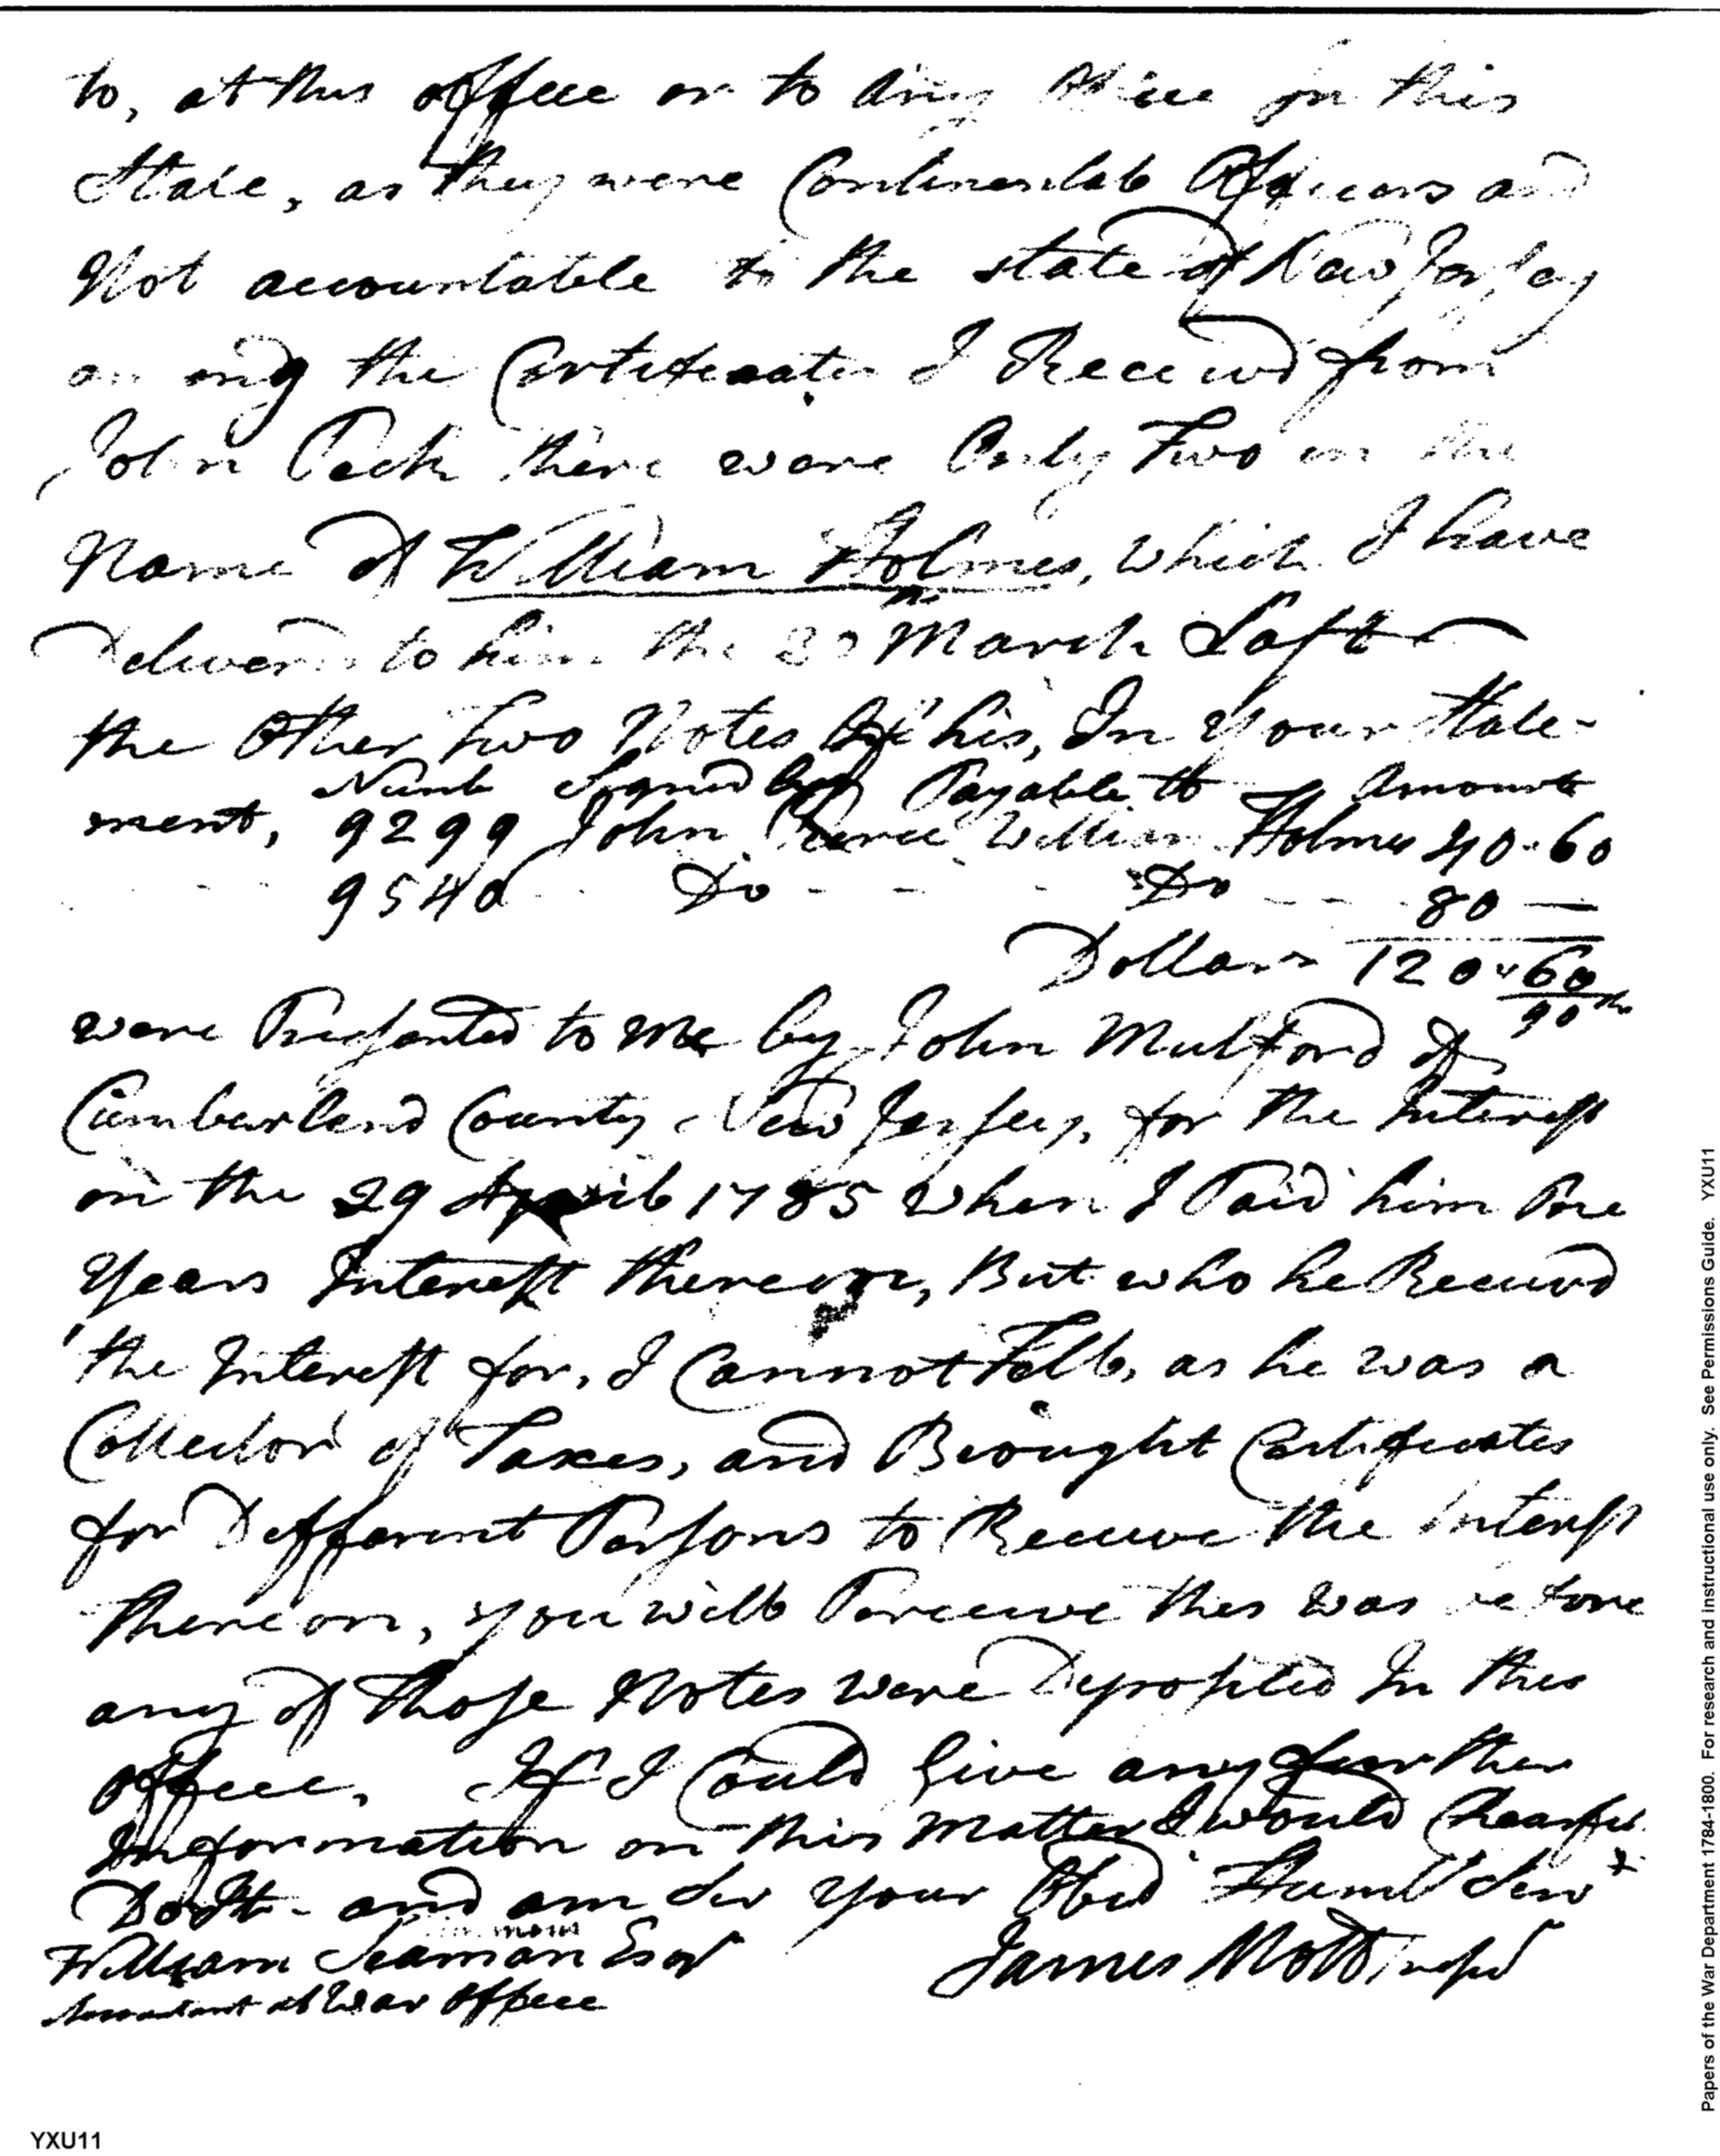 to, at this office or to any Office in this
State, as they were Continental Officers and
Not accountable to the state of New Jersey
among the Certificates I Received from
John Peck there were Only Two in the
Name of William Holmes, which I have
Deliver'd to him the 30th March Last
the Other two Notes of his, In your State-
Numb Signed by Payable to Amount
ment, 9299 John Pierce William Holmes 40.60
9540 Do - - - Do - - - 80 —
Dollars 120.60/90ths
were Presented to Me by John Mulford of
Cumberland County New Jersey, for the Interest
on the 29 April 1785 when I Paid him One
Years Interest thereon, But who he Receivd
the Interest for, I Cannot Tell, as he was a
Collector of Taxes, and Brought Certificates
for Different Persons to Receive the Interest
thereon, you will Perceive this was before
any of those Notes were Deposited In this
office. If I Could Give any further
Information on this Matter I would Chearful
Do It - and am Sir your Obed Huml Servt
William Seaman Esqr James Mott
Accountant at War Office
YXU11
Papers of the War Department 1784-1800. For research and instructional use only. See Permissions Guide. YXU11